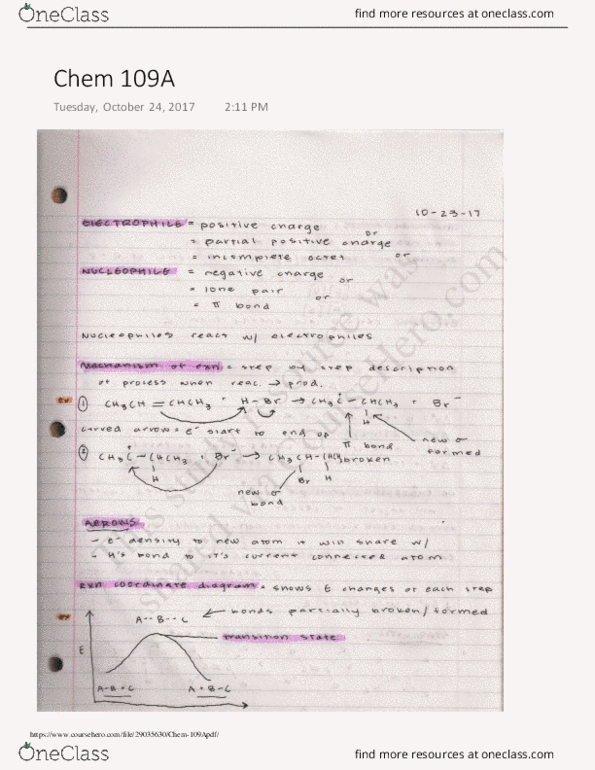 OneClass
find more resources at oneclass.com
Chem 109A
Tuesday, October 24, 2017 2:11 PM
10-23-17
ELECTROPHILE = positive charge or
= partial positive charge or
= incomplete octet
NUCLEOPHILE = negative charge or
= lone pair or
= π bond
Nucleophiles react w/ electrophiles
Mechanism of rxn = step by step description
of process when reac. → prod.
ex ① CH₃CH=CHCH₃ + H-Br → CH₃C⁺-CHCH₃ + Br⁻
H
curved arrows = e⁻ start to end up
π bond broken
new σ formed
② CH₃C⁺-CHCH₃ + Br⁻ → CH₃CH-CHCH₃
H Br H
new σ bond
ARROWS
- e⁻ density to new atom it will share w/
- H's bond to it's current connected atom
rxn coordinate diagram = shows E changes of each step
ex A--B--C ← bonds partially broken/formed
transition state
E
A-B+C A+B-C
This study resource was
shared via CourseHero.com
https://www.coursehero.com/file/29035630/Chem-109Apdf/
OneClass
find more resources at oneclass.com